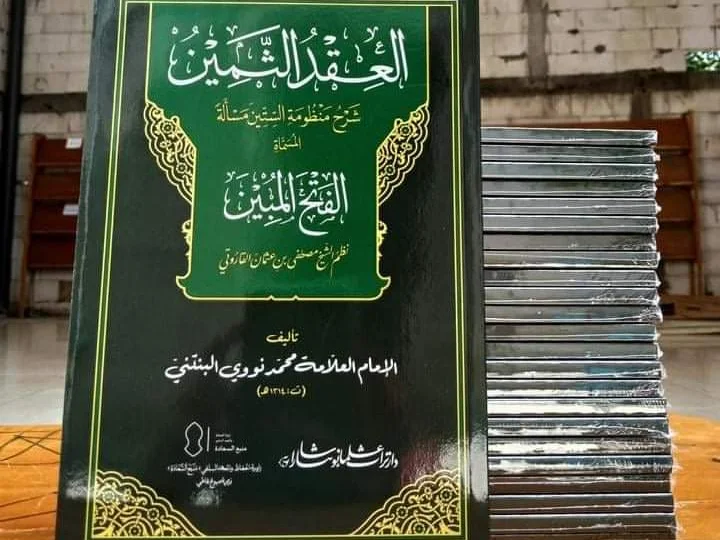 العِقْدُ الثَّمِيْنُ
شَرْحُ مَنْظُومَةِ السِّتِّينَ مَسْأَلَةً
المُسَمَّاةِ
الفَتْحَ المُبِيْنَ
نظم الشيخ مصطفى بن عثمان القاروتي
تأليف
الإمام العلامة محمد نووي البنتني
(ت: ١٣١٤هـ)
منبع السعادة
دار تراث علماء نوسانتارا